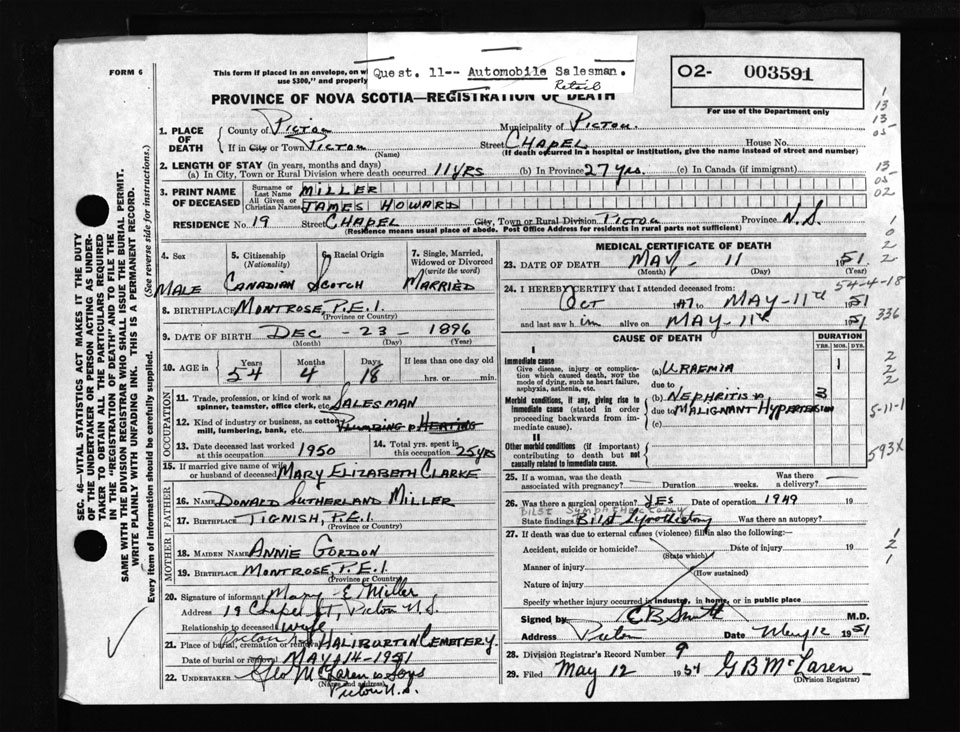 FORM 6
This form if placed in an envelope, on w
use $300," and properly
Quest. 11-- Automobile Salesman.
Retail
O2- 003591
For use of the Department only
PROVINCE OF NOVA SCOTIA—REGISTRATION OF DEATH
1. PLACE OF DEATH
County of Pictou
Municipality of Pictou.
If in City or Town Pictou
(Name)
Street CHAPEL House No.
(If death occurred in a hospital or institution, give the name instead of street and number)
2. LENGTH OF STAY (in years, months and days)
(a) In City, Town or Rural Division where death occurred 11 YRS (b) In Province 27 yrs. (c) In Canada (if immigrant)
3. PRINT NAME OF DECEASED
Surname or Last Name MILLER
All Given or Christian Names JAMES HOWARD
RESIDENCE No. 19 Street CHAPEL City, Town or Rural Division PICTOU Province N.S.
(Residence means usual place of abode. Post Office Address for residents in rural parts not sufficient)
4. Sex
MALE
5. Citizenship
(Nationality)
CANADIAN
6. Racial Origin
SCOTCH
7. Single, Married, Widowed or Divorced
(write the word)
MARRIED
8. BIRTHPLACE MONTROSE, P.E.I.
(Province or Country)
9. DATE OF BIRTH DEC - 23 - 1896
(Month) (Day) (Year)
10. AGE in Years Months Days If less than one day old
54 4 18 hrs. or min.
OCCUPATION
11. Trade, profession, or kind of work as spinner, teamster, office clerk, etc SALESMAN
12. Kind of industry or business, as cotton mill, lumbering, bank, etc. PLUMBING & HEATING
13. Date deceased last worked at this occupation 1950
14. Total yrs. spent in this occupation 25 yrs
15. If married give name of wife or husband of deceased MARY ELIZABETH CLARKE
FATHER
16. NAME DONALD SUTHERLAND MILLER
17. BIRTHPLACE TIGNISH, P.E.I.
(Province or Country)
MOTHER
18. MAIDEN NAME ANNIE GORDON
19. BIRTHPLACE MONTROSE, P.E.I.
(Province or Country)
20. Signature of informant Mary E. Miller
Address 19 Chapel St, Pictou N.S.
Relationship to deceased wife
21. Place of burial, cremation or removal HALIBURTIN CEMETERY.
Date of burial or removal MAY 14-1951
22. UNDERTAKER Geo McLaren & Sons
(Name and address)
Pictou N.S.
MEDICAL CERTIFICATE OF DEATH
23. DATE OF DEATH MAY - 11 1951
(Month) (Day) (Year)
24. I HEREBY CERTIFY that I attended deceased from:
Oct 1947 to MAY-11th 1951
and last saw him alive on MAY-11th 1951
CAUSE OF DEATH
DURATION
YRS. MOS. DYS.
I
Immediate cause
Give disease, injury or complication which caused death, not the mode of dying, such as heart failure, asphyxia, asthenia, etc.
(a) URAEMIA 1
due to
Morbid conditions, if any, giving rise to immediate cause (stated in order proceeding backwards from immediate cause).
(b) NEPHRITIS &
due to MALIGNANT HYPERTENSION
(c)
II
Other morbid conditions (if important) contributing to death but not causally related to immediate cause.
25. If a woman, was the death associated with pregnancy? Duration weeks. Was there a delivery?
26. Was there a surgical operation? YES Date of operation 1949 19
Bilat Sympathectomy
State findings Was there an autopsy?
27. If death was due to external causes (violence) fill in also the following:—
Accident, suicide or homicide? Date of injury 19
(State which)
Manner of injury
(How sustained)
Nature of injury
Specify whether injury occurred in industry, in home, or in public place
Signed by C B Smith M.D.
Address Pictou Date May 12 1951
28. Division Registrar's Record Number 9
29. Filed May 12 1951 G B McLaren
(Division Registrar)
SEC. 46—VITAL STATISTICS ACT MAKES IT THE DUTY OF THE UNDERTAKER OR PERSON ACTING AS UNDERTAKER TO OBTAIN ALL THE PARTICULARS REQUIRED IN THE "REGISTRATION OF DEATH" AND TO FILE THE SAME WITH THE DIVISION REGISTRAR WHO SHALL ISSUE THE BURIAL PERMIT.
WRITE PLAINLY WITH UNFADING INK. THIS IS A PERMANENT RECORD.
Every item of information should be carefully supplied. (See reverse side for instructions.)
1
13
13
05
13
05
02
1
0
2
2
54-4-18
336
2
2
2
5-11-1
593X
1
2
1